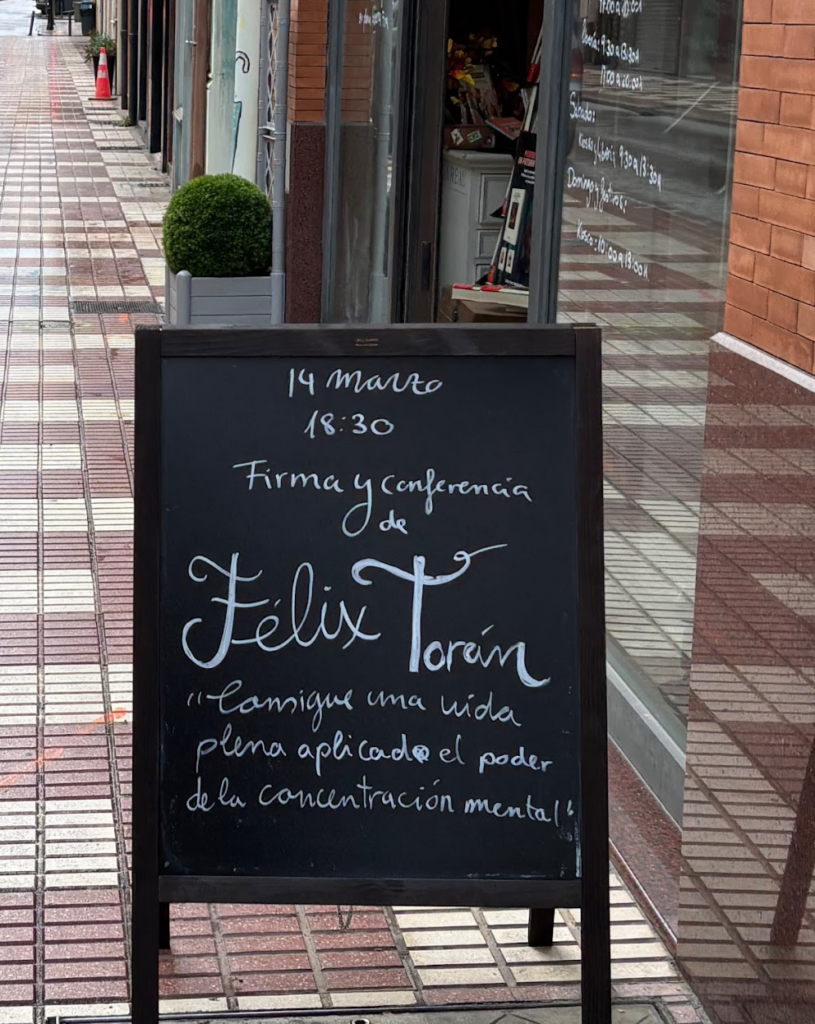 14 Marzo
18:30
Firma y conferencia
de
Félix Torán
"Consigue una vida
plena aplicado el poder
de la concentración mental"
17:00 a 20:00h
9:30 a 13:30h
17:00 a 20:00h
Sábado:
9:30 a 13:30h
Domingo y festivos:
Kiosco: 10:00 a 13:00h